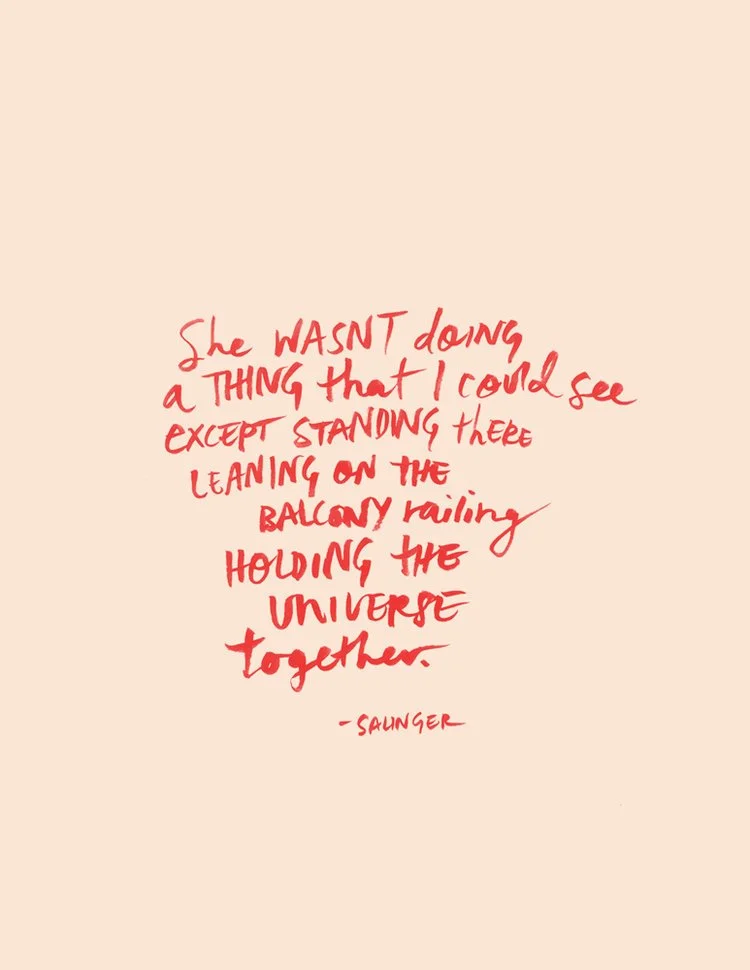 She WASNT doing
a THING that I could see
EXCEPT STANDING thERE
LEANING ON THE
BALCONY railing
HOLDING THE
UNIVERSE
together.
-SALINGER